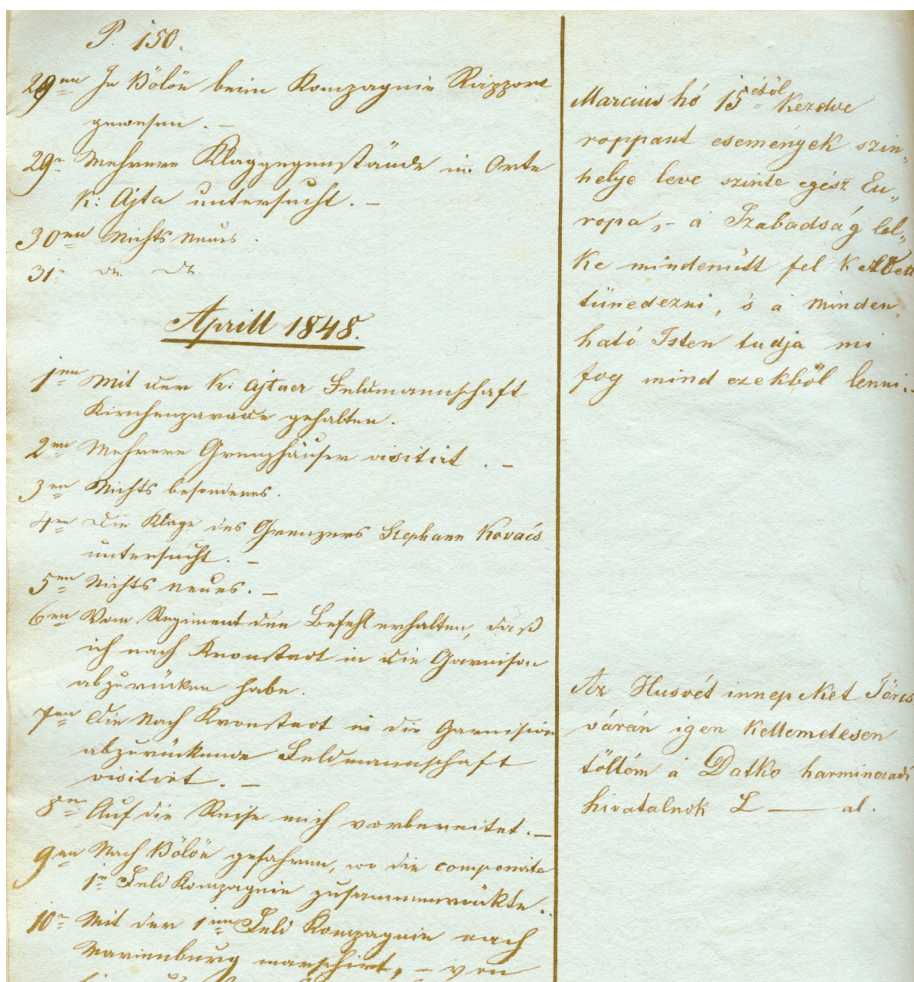 P. 150.
29en In Bölön beim Kompagnie Rapport
gewesen. –
29n Mehrere Klaggegenstände im Orte
K: Ajta untersucht. –
30en Nichts neues.
31n dto dto
Aprill 1848.
1en Mit der K: Ajtaer Feldmannschaft
Kirchenparade gehalten.
2en Mehrere Grenzhäuser visitirt. –
3en Nichts besonderes.
4en Die Klage des Grenzers Stephann Kovács
untersucht. –
5en Nichts neues. –
6en Vom Regiment den Befehl erhalten, daß
ich nach Kronstadt in die Garnison
abzurücken habe.
7en Die nach Kronstadt in die Garnision
abzurückende Feldmannschaft
visitirt. –
8en Auf die Reise mich vorbereitet. –
9en Nach Bölön gefahren, wo die componirte
1e Feld Kompagnie zusammenrückte.
10n Mit der 1ten Feld Kompagnie nach
Marienburg marschirt, – von
Marcius hó 15étöl kezdve
roppant események szin„
helye leve szinte egész Eu„
ropa, – a' Szabadság lel„
ke mindenütt fel kezdett
tünedezni, 's a' minden„
ható Isten tudja mi
fog mind ezekböl lenni.
Az Husvét innepeket Törcs
várán igen kellemetesen
töltöm a' Datko harminczadi
hivatalnok L — al.